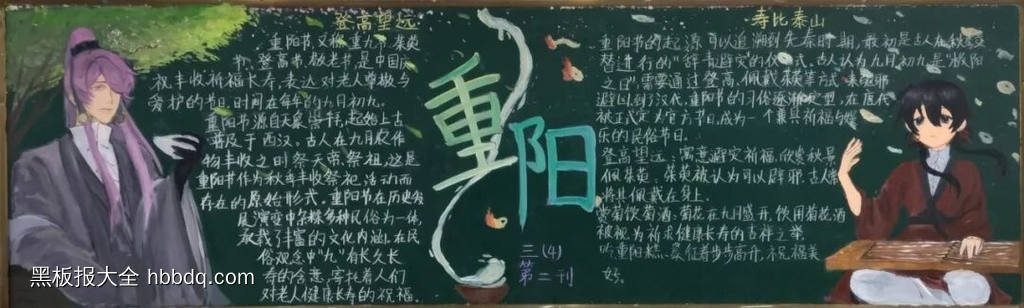 登高望远
重阳节,又称重九节、茱萸
节、登高节、敬老节,是中国庆
祝丰收祈福长寿,表达对老人尊敬与
爱护的节日,时间在每年的九月初九。
重阳节源自天象崇拜,起始上古
普及于西汉。古人在九月农作
物丰收之时祭天帝、祭祖,这是
重阳节作为秋季丰收祭祀活动而
存在的原始形式。重阳节在历史发
展演变中杂糅多种民俗为一体,
承载了丰富的文化内涵。在民
俗观念中“九”有长久长
寿的含意,寄托着人们
对老人健康长寿的祝福。
重阳
三(4)
第二刊
寿比泰山
重阳节的起源可以追溯到先秦时期,最初是古人在秋冬交
替进行的“辞青避灾”的仪式。古人认为九月初九是“极阳
之日”,需要通过登高、佩戴茱萸等方式来驱邪
避凶。到了汉代,重阳节的习俗逐渐定型,在唐代
被正式定为官方节日,成为一个兼具祈福与娱
乐的民俗节日。
登高望远:寓意避灾祈福,欣赏秋景
佩茱萸:茱萸被认为可以辟邪,古人常
将其佩戴在身上。
赏菊饮菊酒:菊花在九月盛开,饮用菊花酒
被视为祈求健康长寿的吉祥之举。
吃重阳糕:象征着步步高升,祝福美
好。
黑板报大全 hbbdq.com